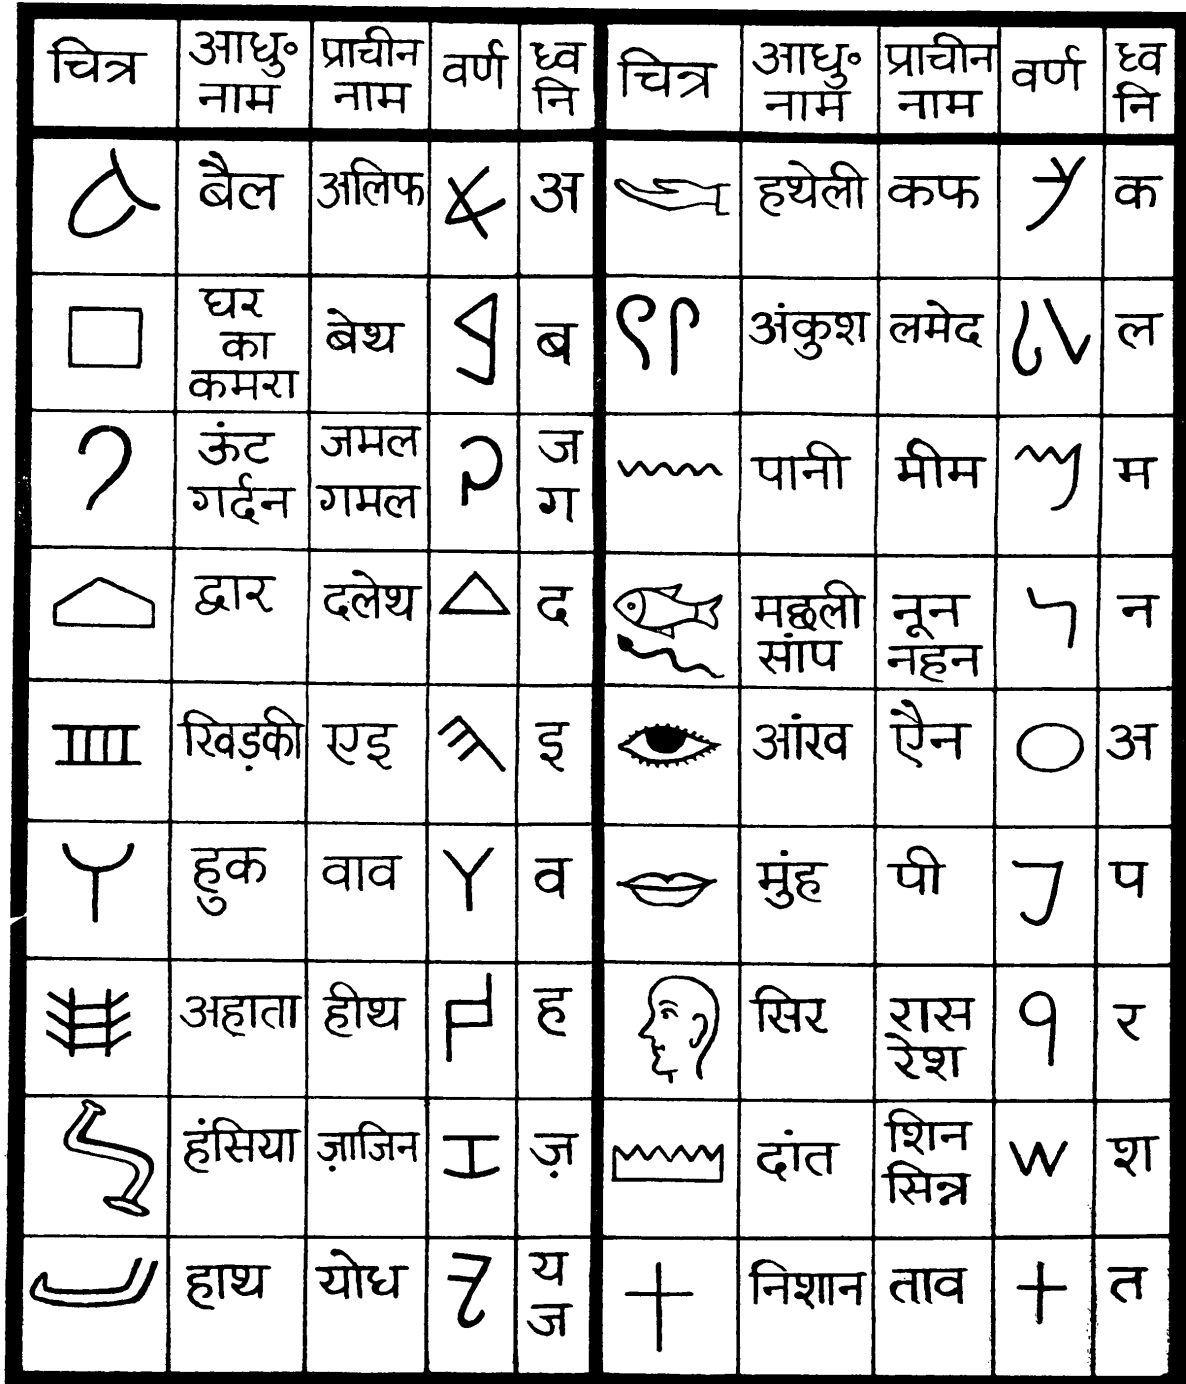 चित्र आधु॰ नाम प्राचीन नाम वर्ण ध्वनि चित्र आधु॰ नाम प्राचीन नाम वर्ण ध्वनि
बैल अलिफ अ हथेली कफ क
घर का कमरा बेथ ब अंकुश लमेद ल
ऊंट गर्दन जमल गमल ज ग पानी मीम म
द्वार दलेथ द मछली सांप नून नहन न
खिड़की एइ इ आंख ऐन अ
हुक वाव व मुंह पी प
अहाता हीथ ह सिर रास रेश र
हंसिया ज़ाजिन ज़ दांत शिन सिन्न श
हाथ योध य ज निशान ताव त